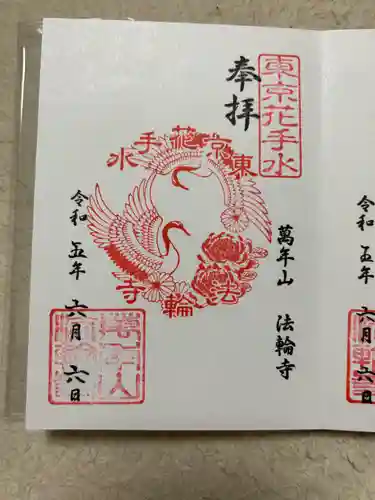 東京花手水
奉拝
東京花手水
法輪寺
萬年山　法輪寺
令和　五年　六月　六日
令和　五年　六月　六日